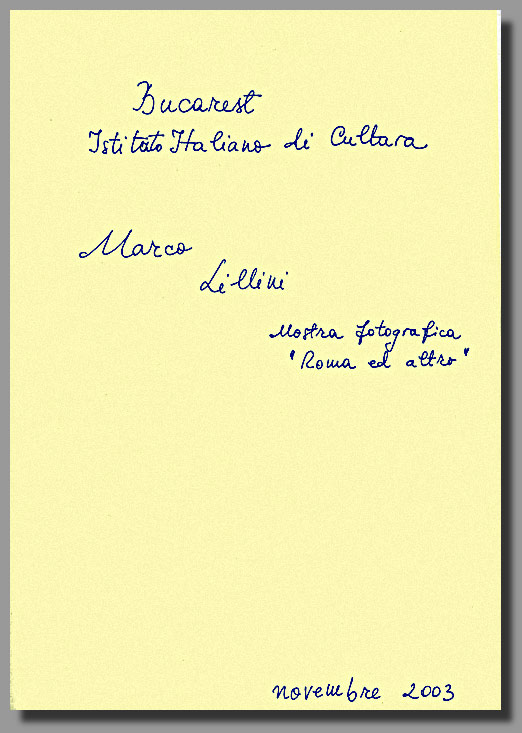 Bucarest
Istituto Italiano di Cultura
Marco
Lillini
Mostra fotografica
"Roma ed altro"
novembre 2003